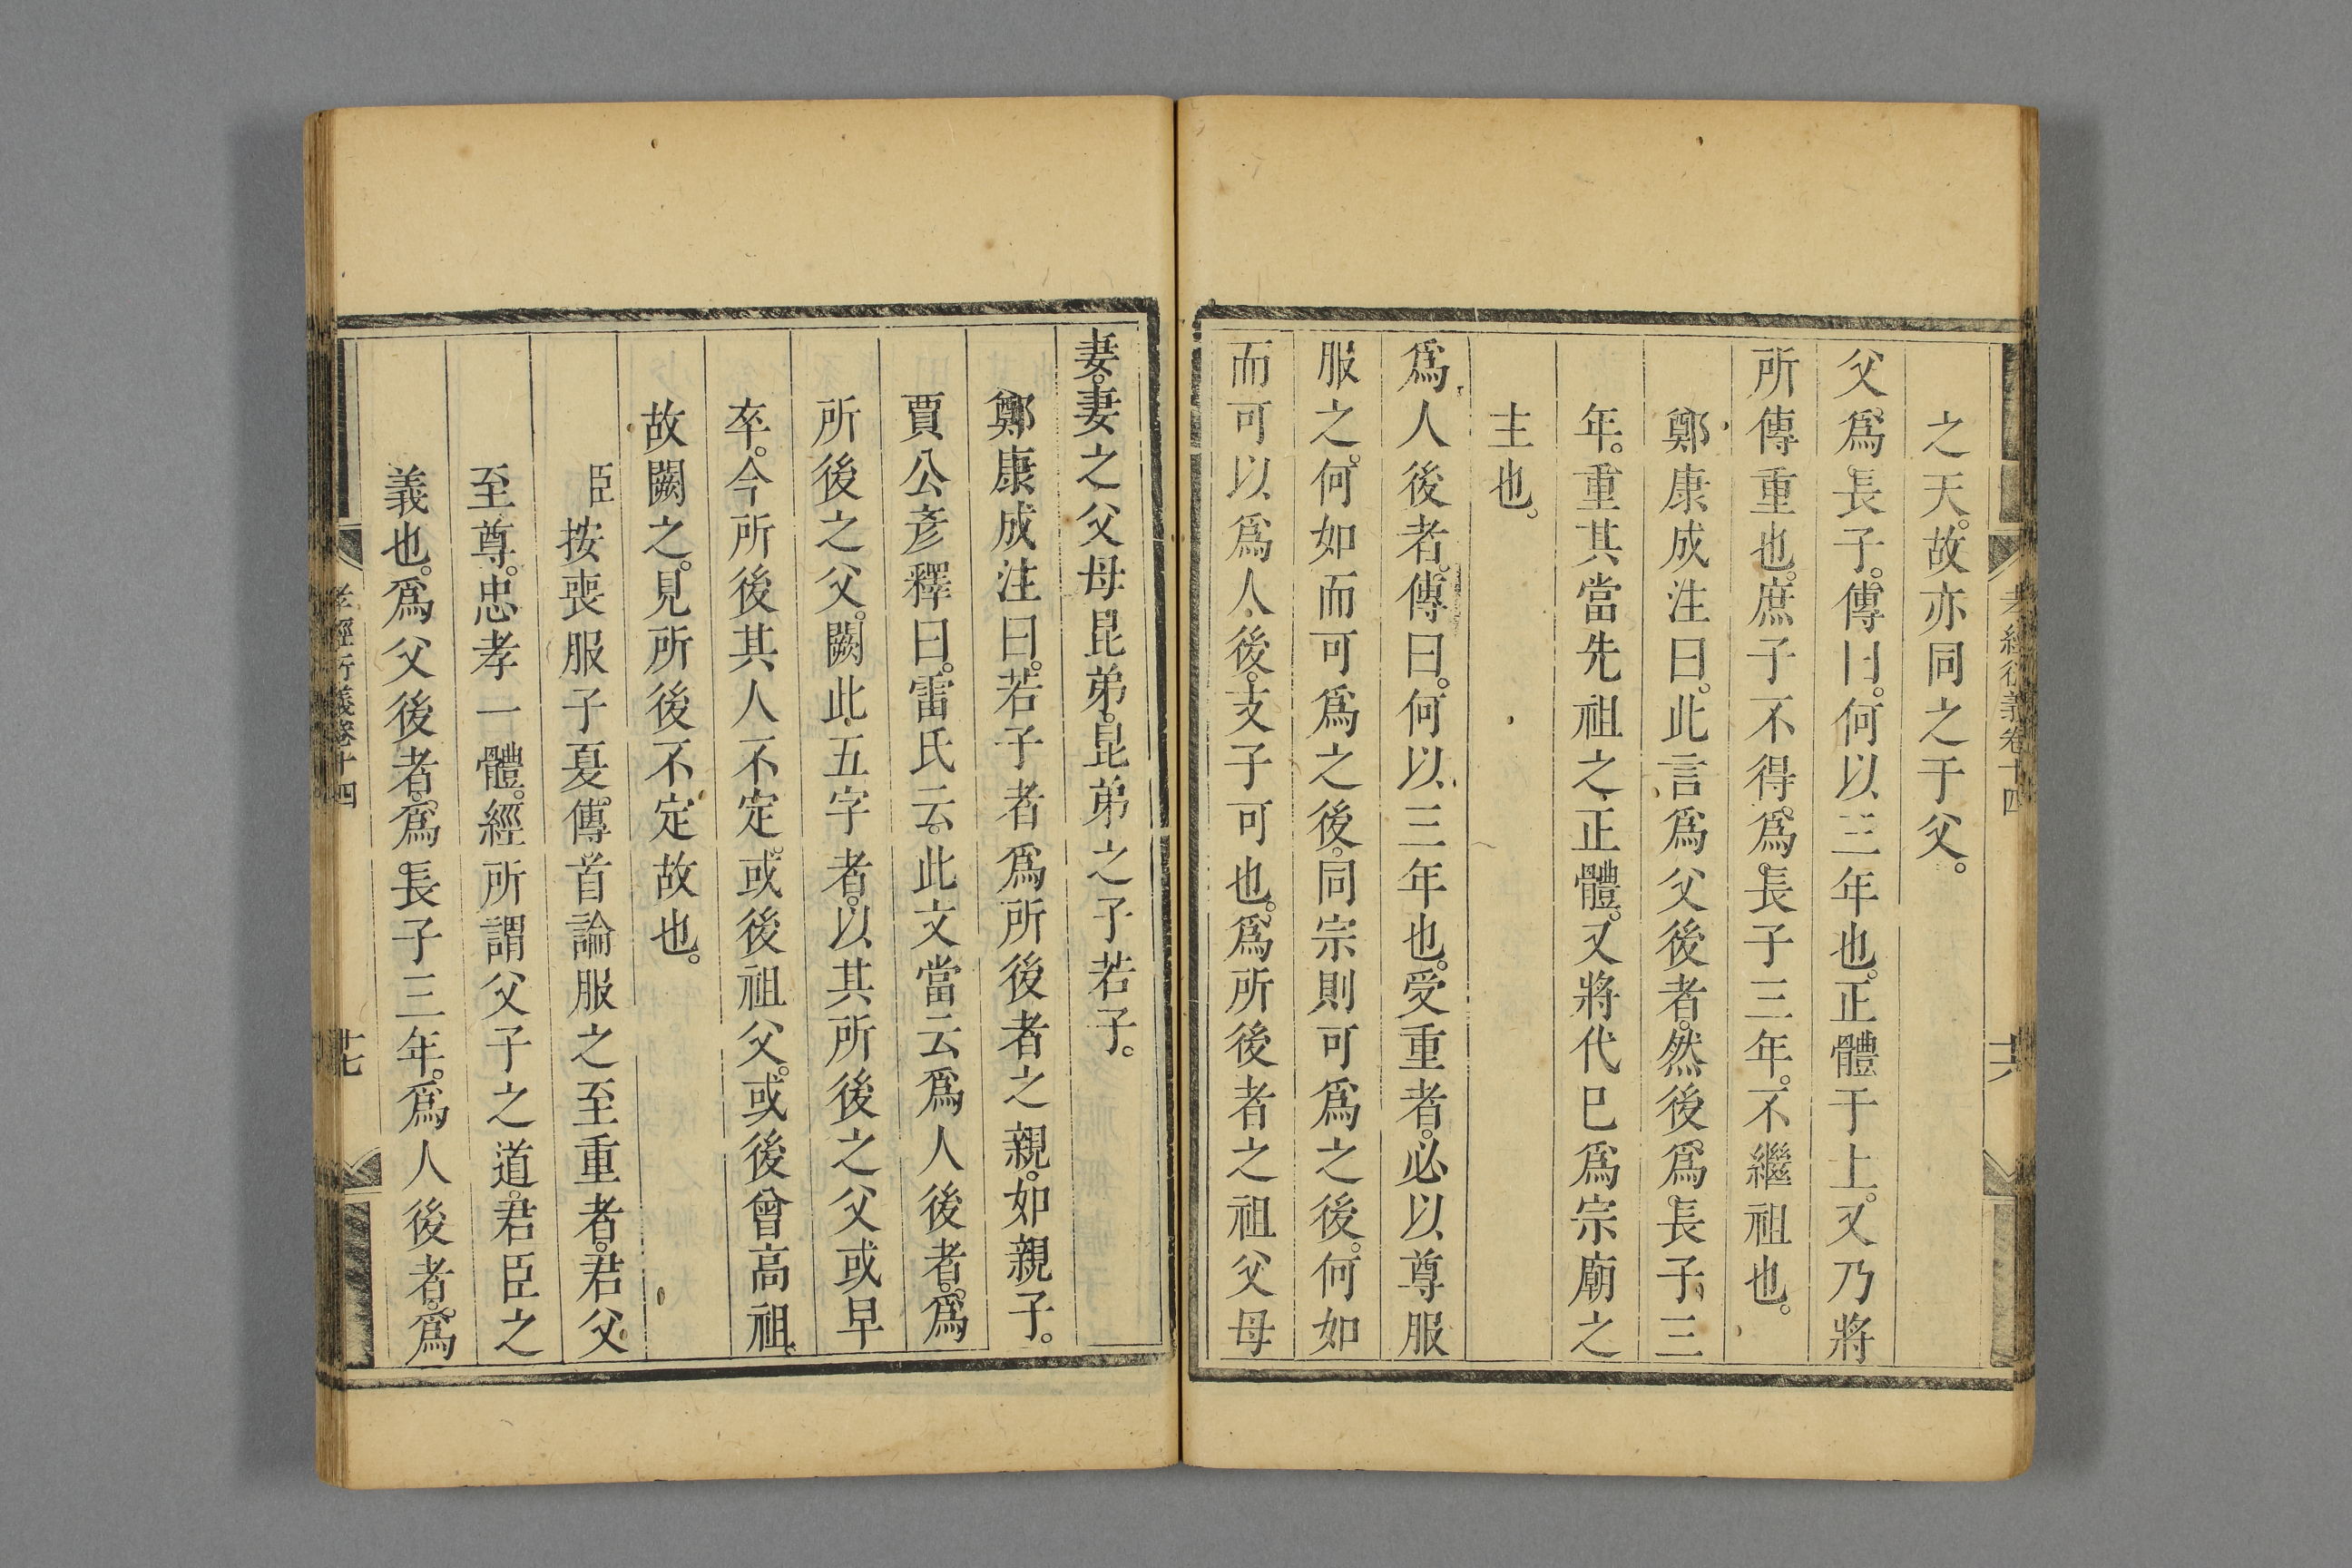 孝經衍義卷十四
十六
之天。故亦同之于父。
父爲長子。傳曰。何以三年也。正體于上。又乃將
所傳重也。庶子不得爲長子三年。不繼祖也。
鄭康成注曰。此言爲父後者。然後爲長子三
年。重其當先祖之正體。又將代已爲宗廟之
主也。
爲人後者。傳曰。何以三年也。受重者。必以尊服
服之。何如而可爲之後。同宗則可爲之後。何如
而可以爲人後。支子可也。爲所後者之祖父母
妻。妻之父母昆弟。昆弟之子若子。
鄭康成注曰。若子者爲所後者之親。如親子。
賈公彥釋曰。雷氏云。此文當云爲人後者。爲
所後之父。闕此五字者。以其所後之父或早
卒。今所後其人不定。或後祖父。或後曾高祖。
故闕之。見所後不定故也。
臣按喪服子夏傳首論服之至重者。君父
至尊。忠孝一體。經所謂父子之道。君臣之
義也。爲父後者。爲長子三年。爲人後者。爲
孝經衍義卷十四
十七